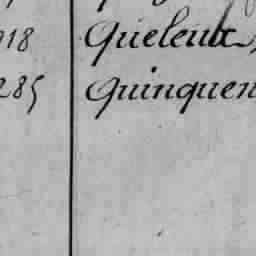 918 Queleux
285 Quinquen